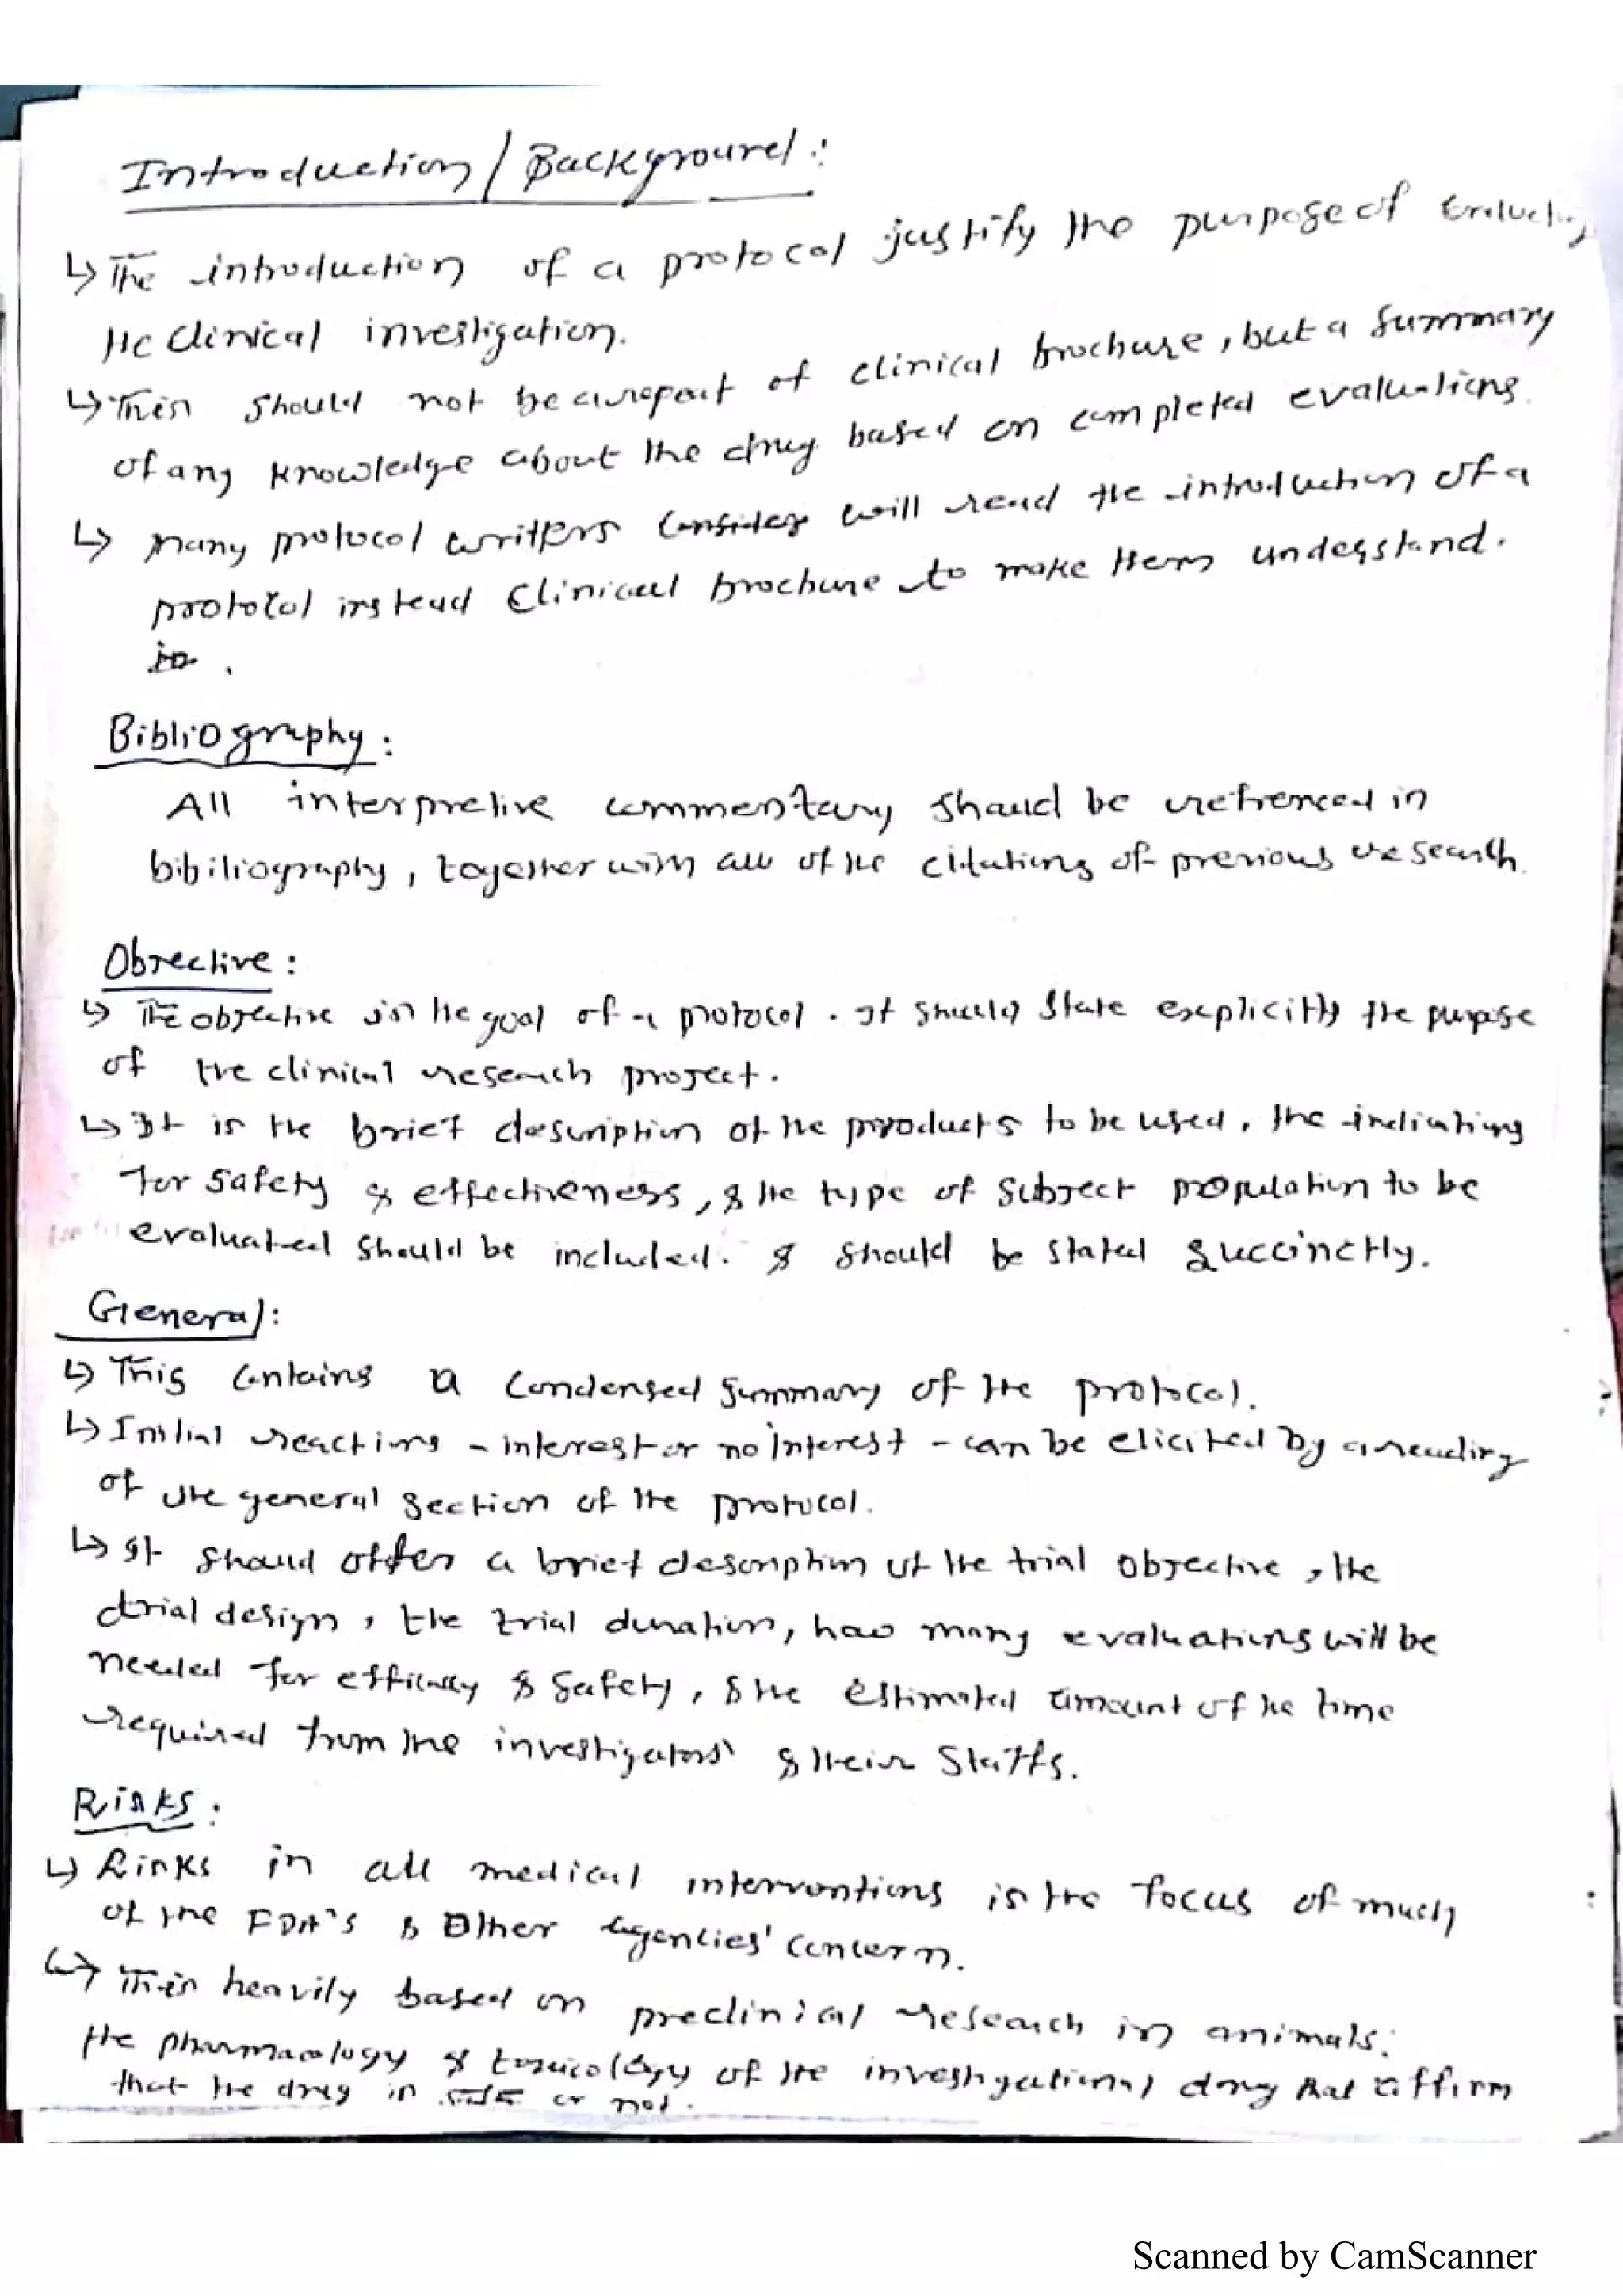 Introduction / Background:
↳ The introduction of a protocol justify the purpose of
the clinical investigation.
↳ This should not be a repeat of clinical brochure, but a summary
of any knowledge about the drug based on completed evaluations.
↳ many protocol writers consider will read the introduction of a
protocol instead clinical brochure to make them understand.
Bibliography:
All interpretive commentary should be refrenced in
bibiliography, together with all of the citations of previous research.
Objective:
↳ The objective is the goal of a protocol. It should state explicitly the purpose
of the clinical research project.
↳ It is the brief description of the products to be used, the indications
for safety & effectiveness, & the type of subject population to be
evaluated should be included. & should be stated succinctly.
General:
↳ This contains a condensed summary of the protocol.
↳ Initial reactions - interest or no interest - can be elicited by a reading
of the general section of the protocol.
↳ It should offer a brief description of the trial objective, the
trial design, the trial duration, how many evaluations will be
needed for efficacy & safety, & the estimated amount of the time
required from the investigators & their staffs.
Risks:
↳ Risks in all medical interventions is the focus of much
of the FDA's & Other agencies' concern.
↳ This heavily based on preclinical research in animals:
the pharmacology & toxicology of the investigational drug that affirm
that the drug is safe or not.
Scanned by CamScanner